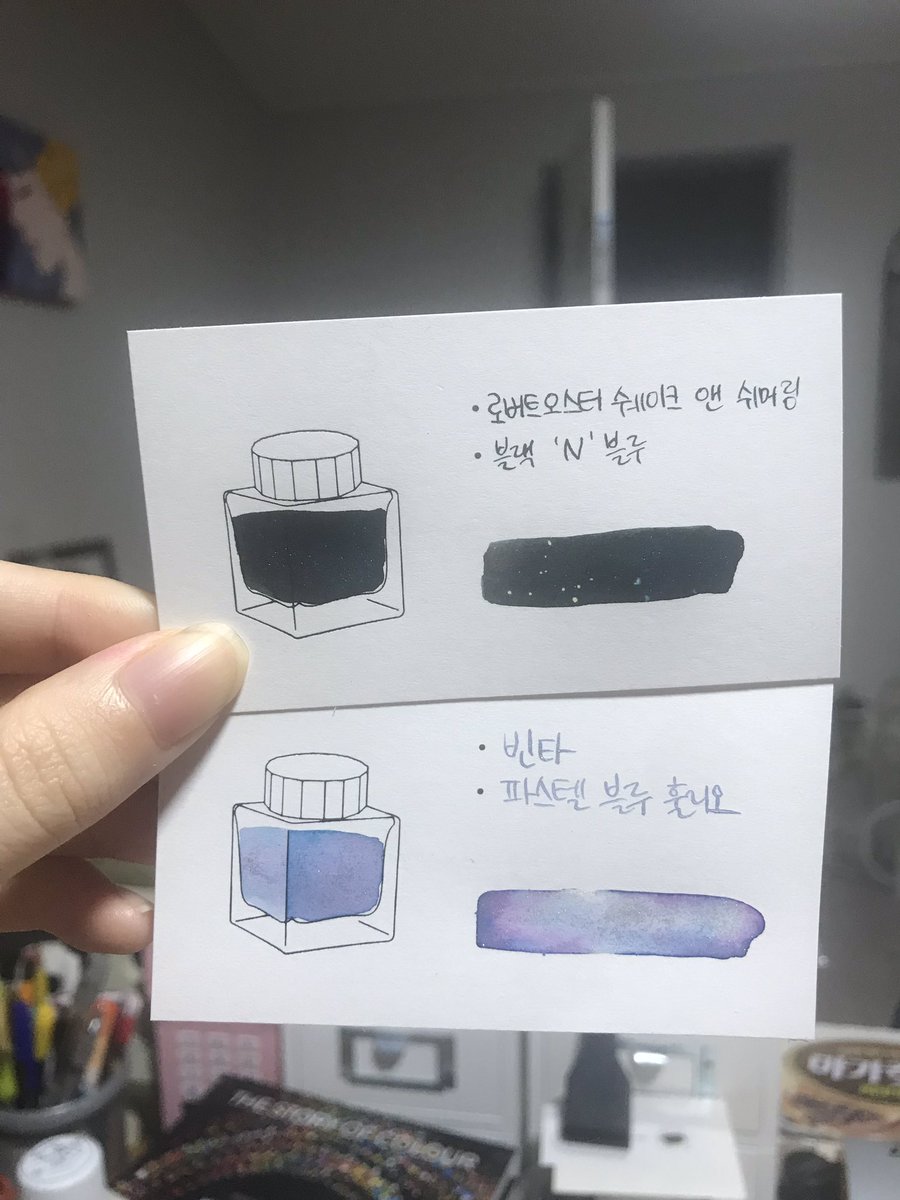 • 로버트오스터 쉐이크 앤 쉬머링
• 블랙 'N' 블루
• 빈타
• 파스텔 블루 훌리오
THE STORY OF COLOUR